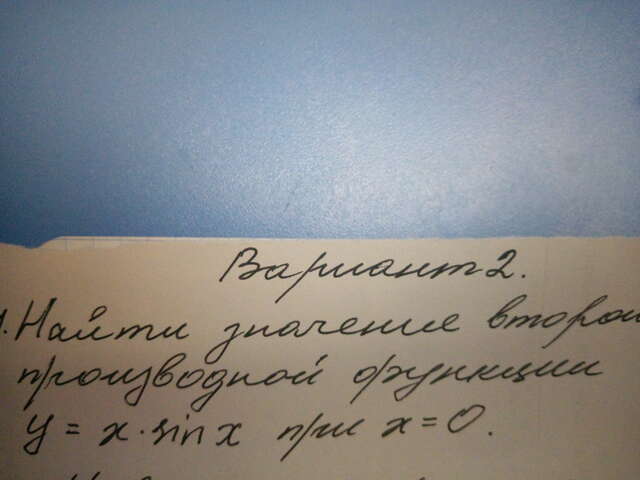 Вариант 2.
1. Найти значение второй
производной функции
y = x·sin x при x = 0.